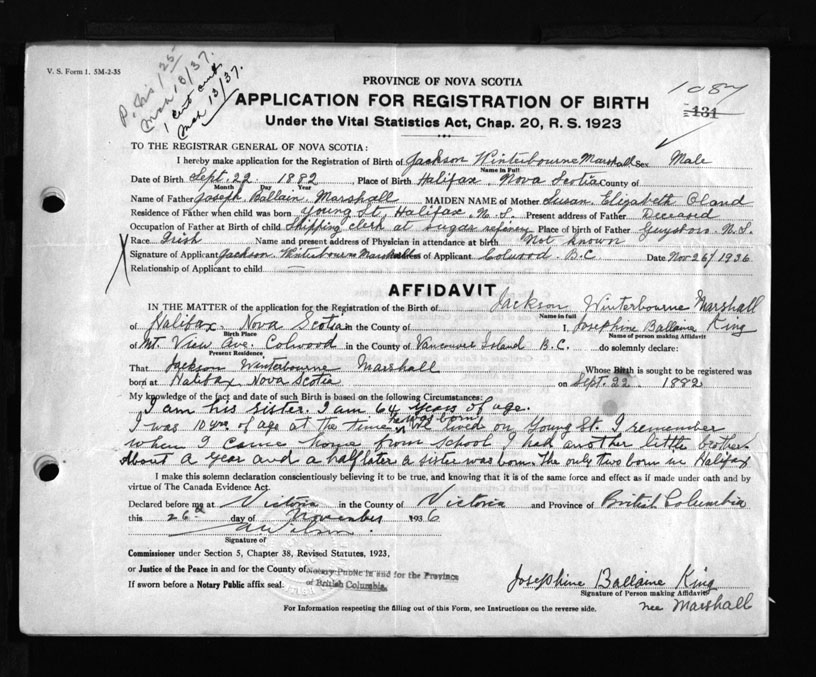 V. S. Form 1. 5M-2-35
Mch 13/37.
1 cert
Mch 13/37.
1087
131
PROVINCE OF NOVA SCOTIA
APPLICATION FOR REGISTRATION OF BIRTH
Under the Vital Statistics Act, Chap. 20, R. S. 1923
TO THE REGISTRAR GENERAL OF NOVA SCOTIA:
I hereby make application for the Registration of Birth of Jackson Winterbourne Marshall Sex Male
Name in Full
Date of Birth Sept. 22 1882 Place of Birth Halifax Nova Scotia County of
Month Day Year
Name of Father Joseph Ballain Marshall MAIDEN NAME of Mother Susan Elizabeth Oland
Residence of Father when child was born Young St, Halifax, N.S. Present address of Father Deceased
Occupation of Father at Birth of Child Shipping clerk at sugar refinery Place of birth of Father Guysboro N.S.
Race Irish Name and present address of Physician in attendance at birth Not known
Signature of Applicant Jackson Winterbourne Marshall Address of Applicant Colwood B.C. Date Nov 26/1936
Relationship of Applicant to child —
AFFIDAVIT
IN THE MATTER of the application for the Registration of the Birth of Jackson Winterbourne Marshall
Name in full
of Halifax Nova Scotia in the County of I, Josephine Ballaine King
Birth Place Name of person making Affidavit
of Mt. View Ave. Colwood in the County of Vancouver Island B.C. do solemnly declare:
Present Residence
That Jackson Winterbourne Marshall Whose Birth is sought to be registered was
born at Halifax Nova Scotia on Sept. 22 1882
My knowledge of the fact and date of such Birth is based on the following Circumstances:
I am his sister. I am 64 years of age.
I was 10 yrs of age at the time he was born. We lived on Young St. I remember
when I came home from school I had another little brother
About a year and a half later a sister was born. The only two born in Halifax
I make this solemn declaration conscientiously believing it to be true, and knowing that it is of the same force and effect as if made under oath and by
virtue of The Canada Evidence Act.
Declared before me at Victoria in the County of Victoria and Province of British Columbia
this 26 day of November 1936
A Wilson
Signature of
Commissioner under Section 5, Chapter 38, Revised Statutes, 1923,
or Justice of the Peace in and for the County of Notary Public in and for the Province
If sworn before a Notary Public affix seal. of British Columbia.
Josephine Ballaine King
Signature of Person making Affidavit
nee Marshall
For Information respecting the filling out of this Form, see Instructions on the reverse side.